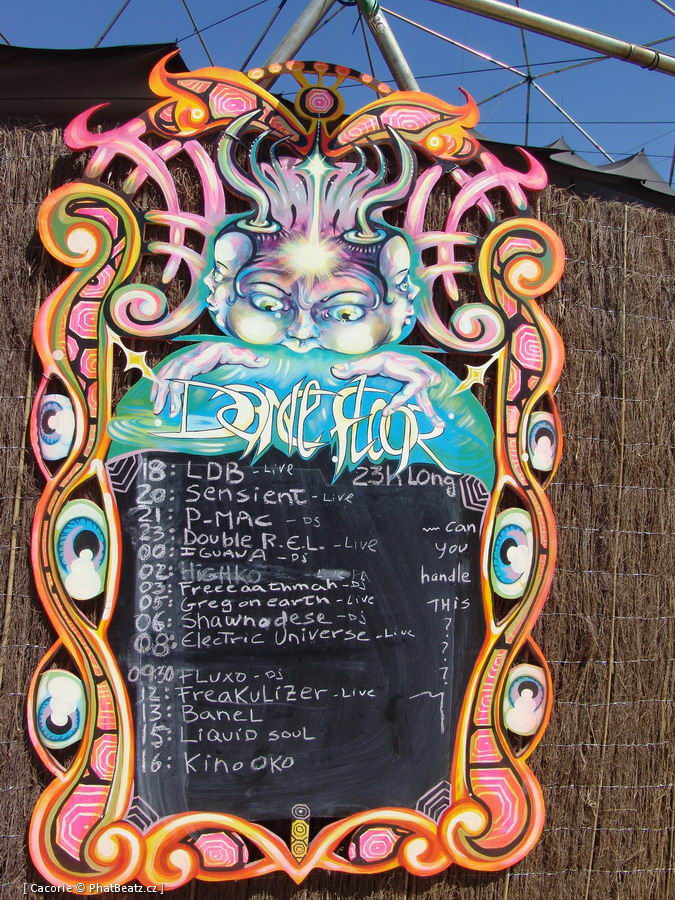 Dance floor
18: LDB - Live 23h Long
20: Sensient - Live
21: P-MAC - DJ
23: Double R.E.L. - Live
00: IGUANA - DJ
02: Highko
03: Freeeaathmah - DJ
05: Gregonearth - Live
06: Shawnodese - DJ
08: Electric Universe - Live
09:30 FLUXO - DJ
12: FreaKuLizer - Live
13: Banel
15: Liquid soul
16: Kino OKO
~ can
you
handle
THis
?
?
?
[ Cacorie © PhatBeatz.cz ]